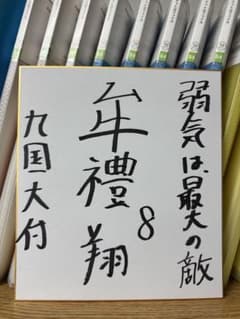 弱気は、最大の敵
牟禮翔
8
九国大付